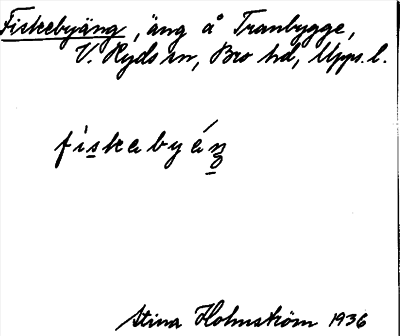 Fiskebyäng, äng å Tranbygge,
V. Ryds sn, Bro hd, Upps. l.
fiskabyäŋ
Stina Holmström 1936